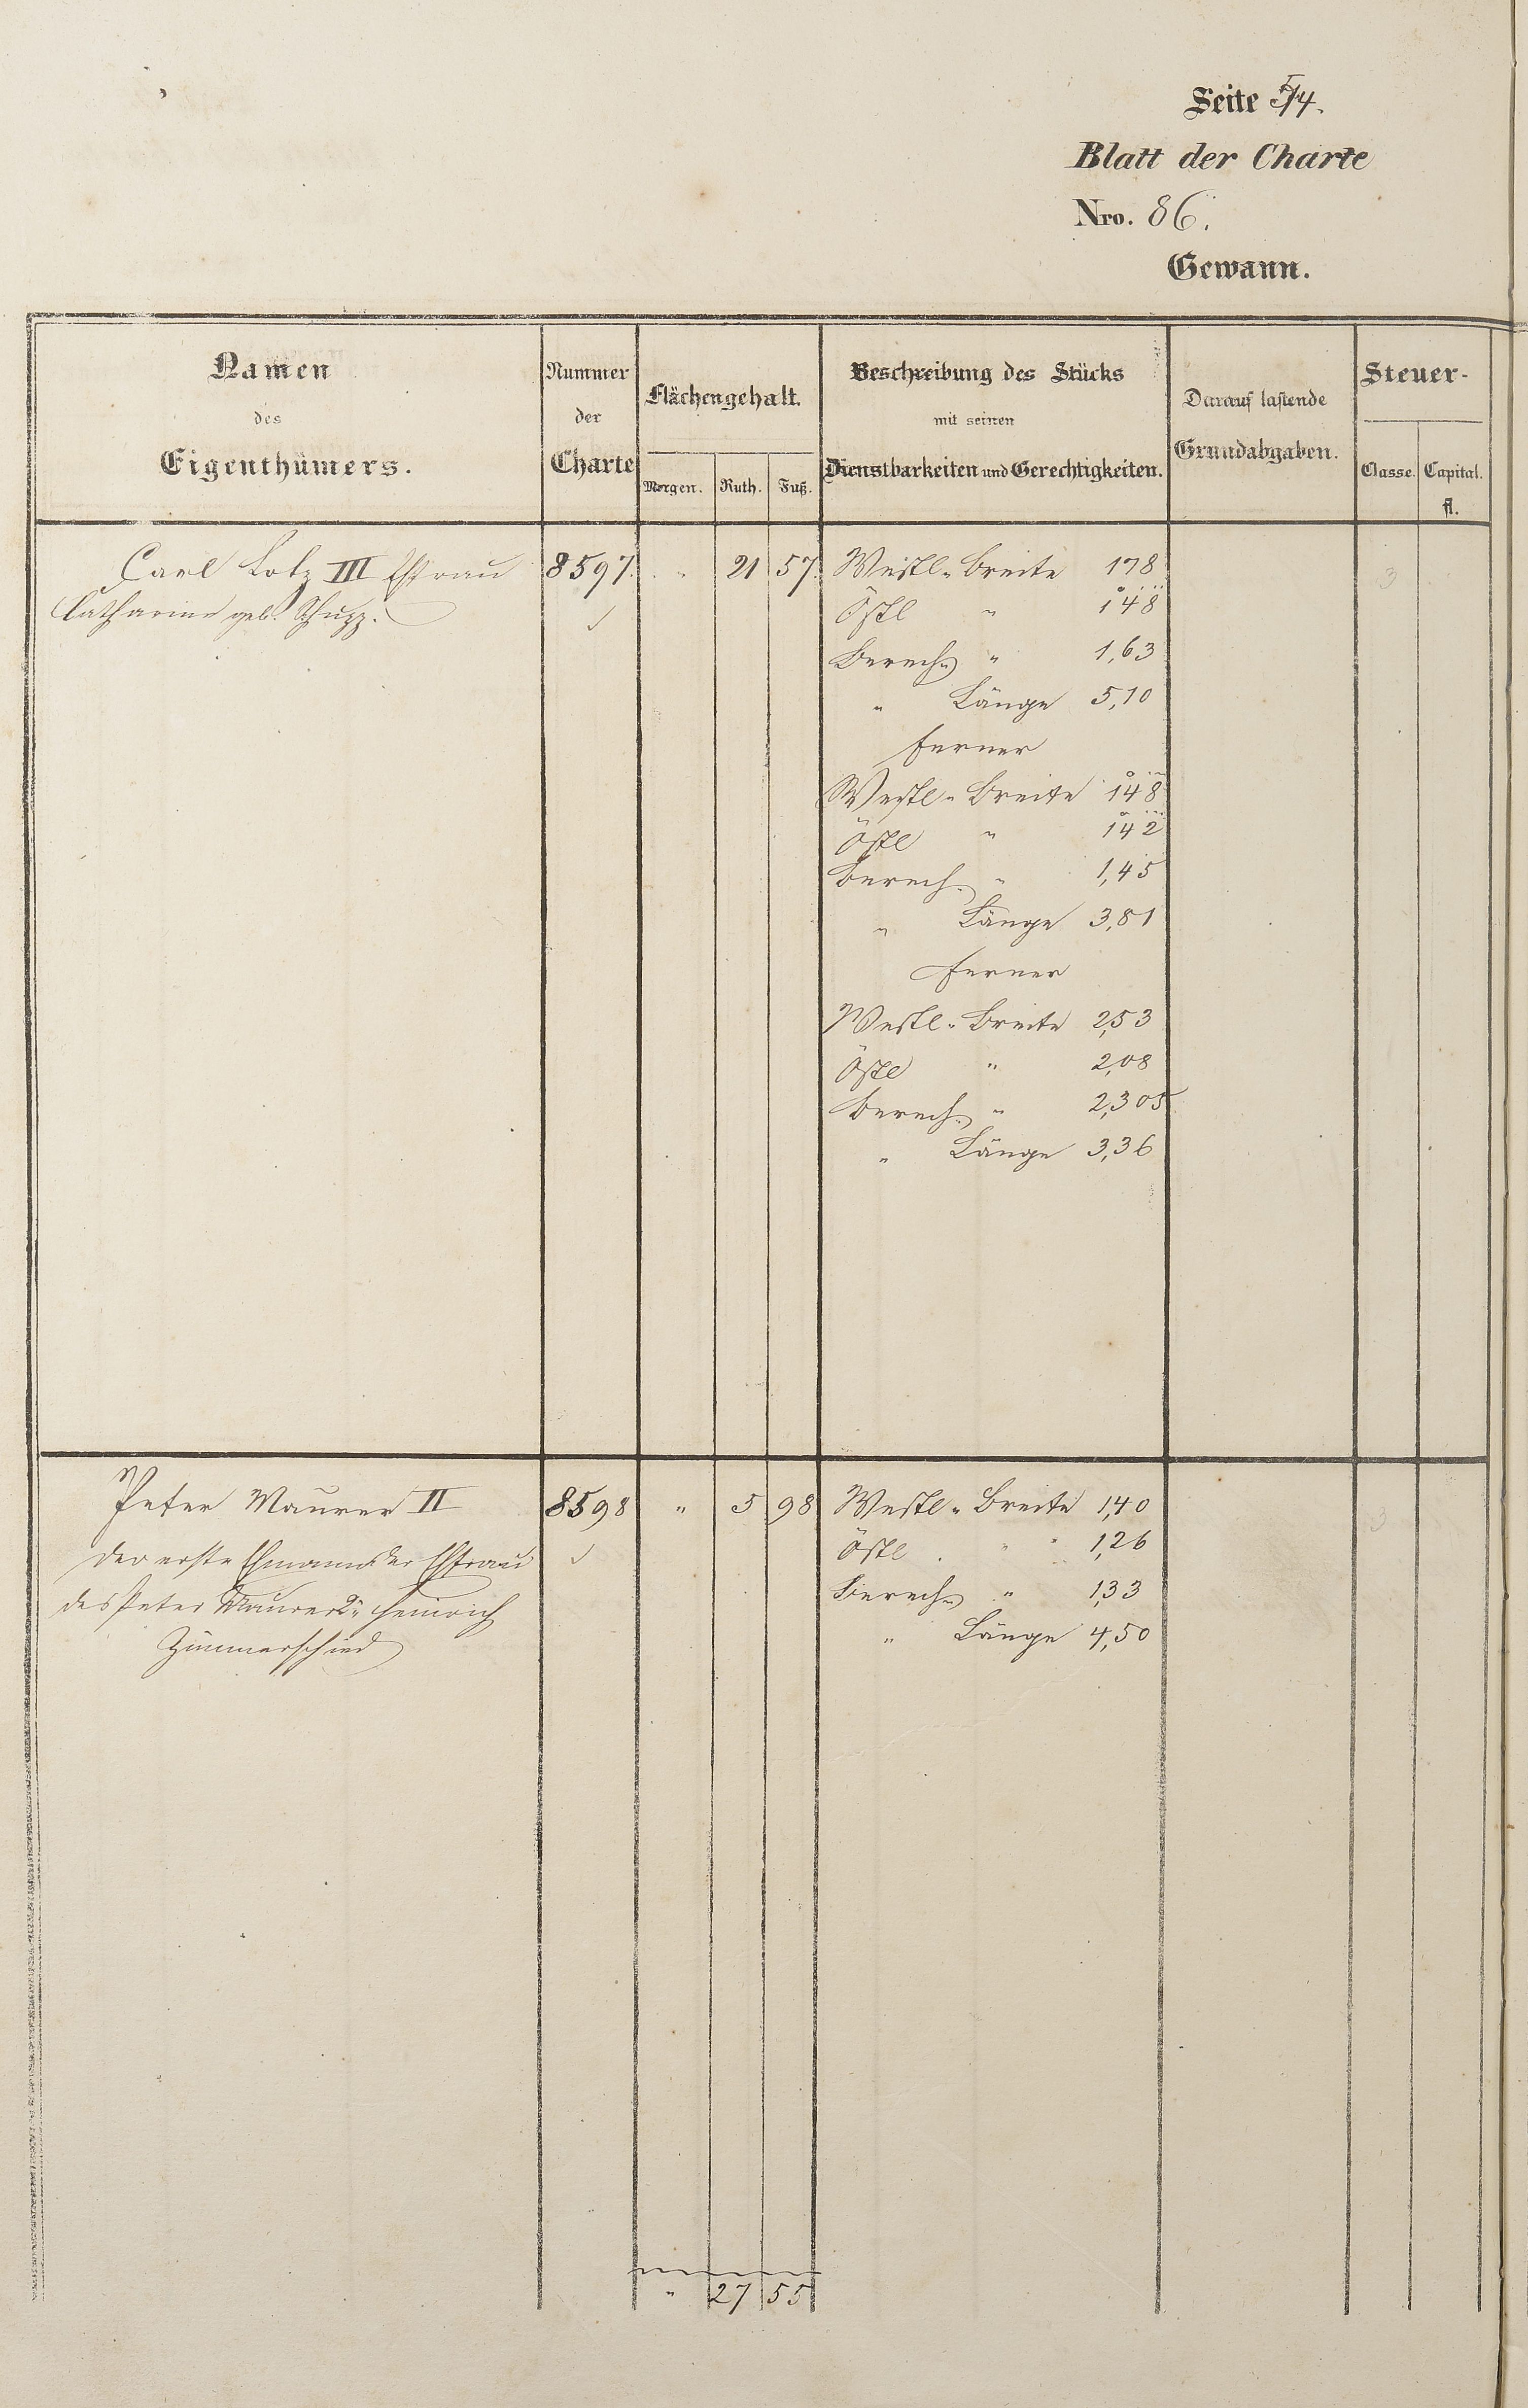 Seite 54.
Blatt der Charte
Nro. 86.
Gewann.
Namen des Eigenthümers.
Nummer der Charte
Flächengehalt.
Morgen. Ruth. Fuß.
Beschreibung des Stücks mit seinen Dienstbarkeiten und Gerechtigkeiten.
Darauf lastende Grundabgaben.
Steuer-
Classe. Capital. fl.
Carl Lotz III Ehfrau 8597. " 21 57. Westl. Breite 178 3
Catharine geb. Schupp. Östl " 148
Berech. " 1,63
" Länge 5,10
ferner
Westl. Breite 148
Östl " 142
Berech. " 1,45
" Länge 3,81
ferner
Westl. Breite 2,53
Östl " 2,08
Berech. " 2,305
" Länge 3,36
Peter Maurer II 8598 " 5 98 Westl. Breite 1,40 3
der erste Ehmann der Ehfrau Östl. " 1,26
des Peter Maurer 2r Heinrich Berech. " 1,33
Zimmerschied " Länge 4,50
" 27 55